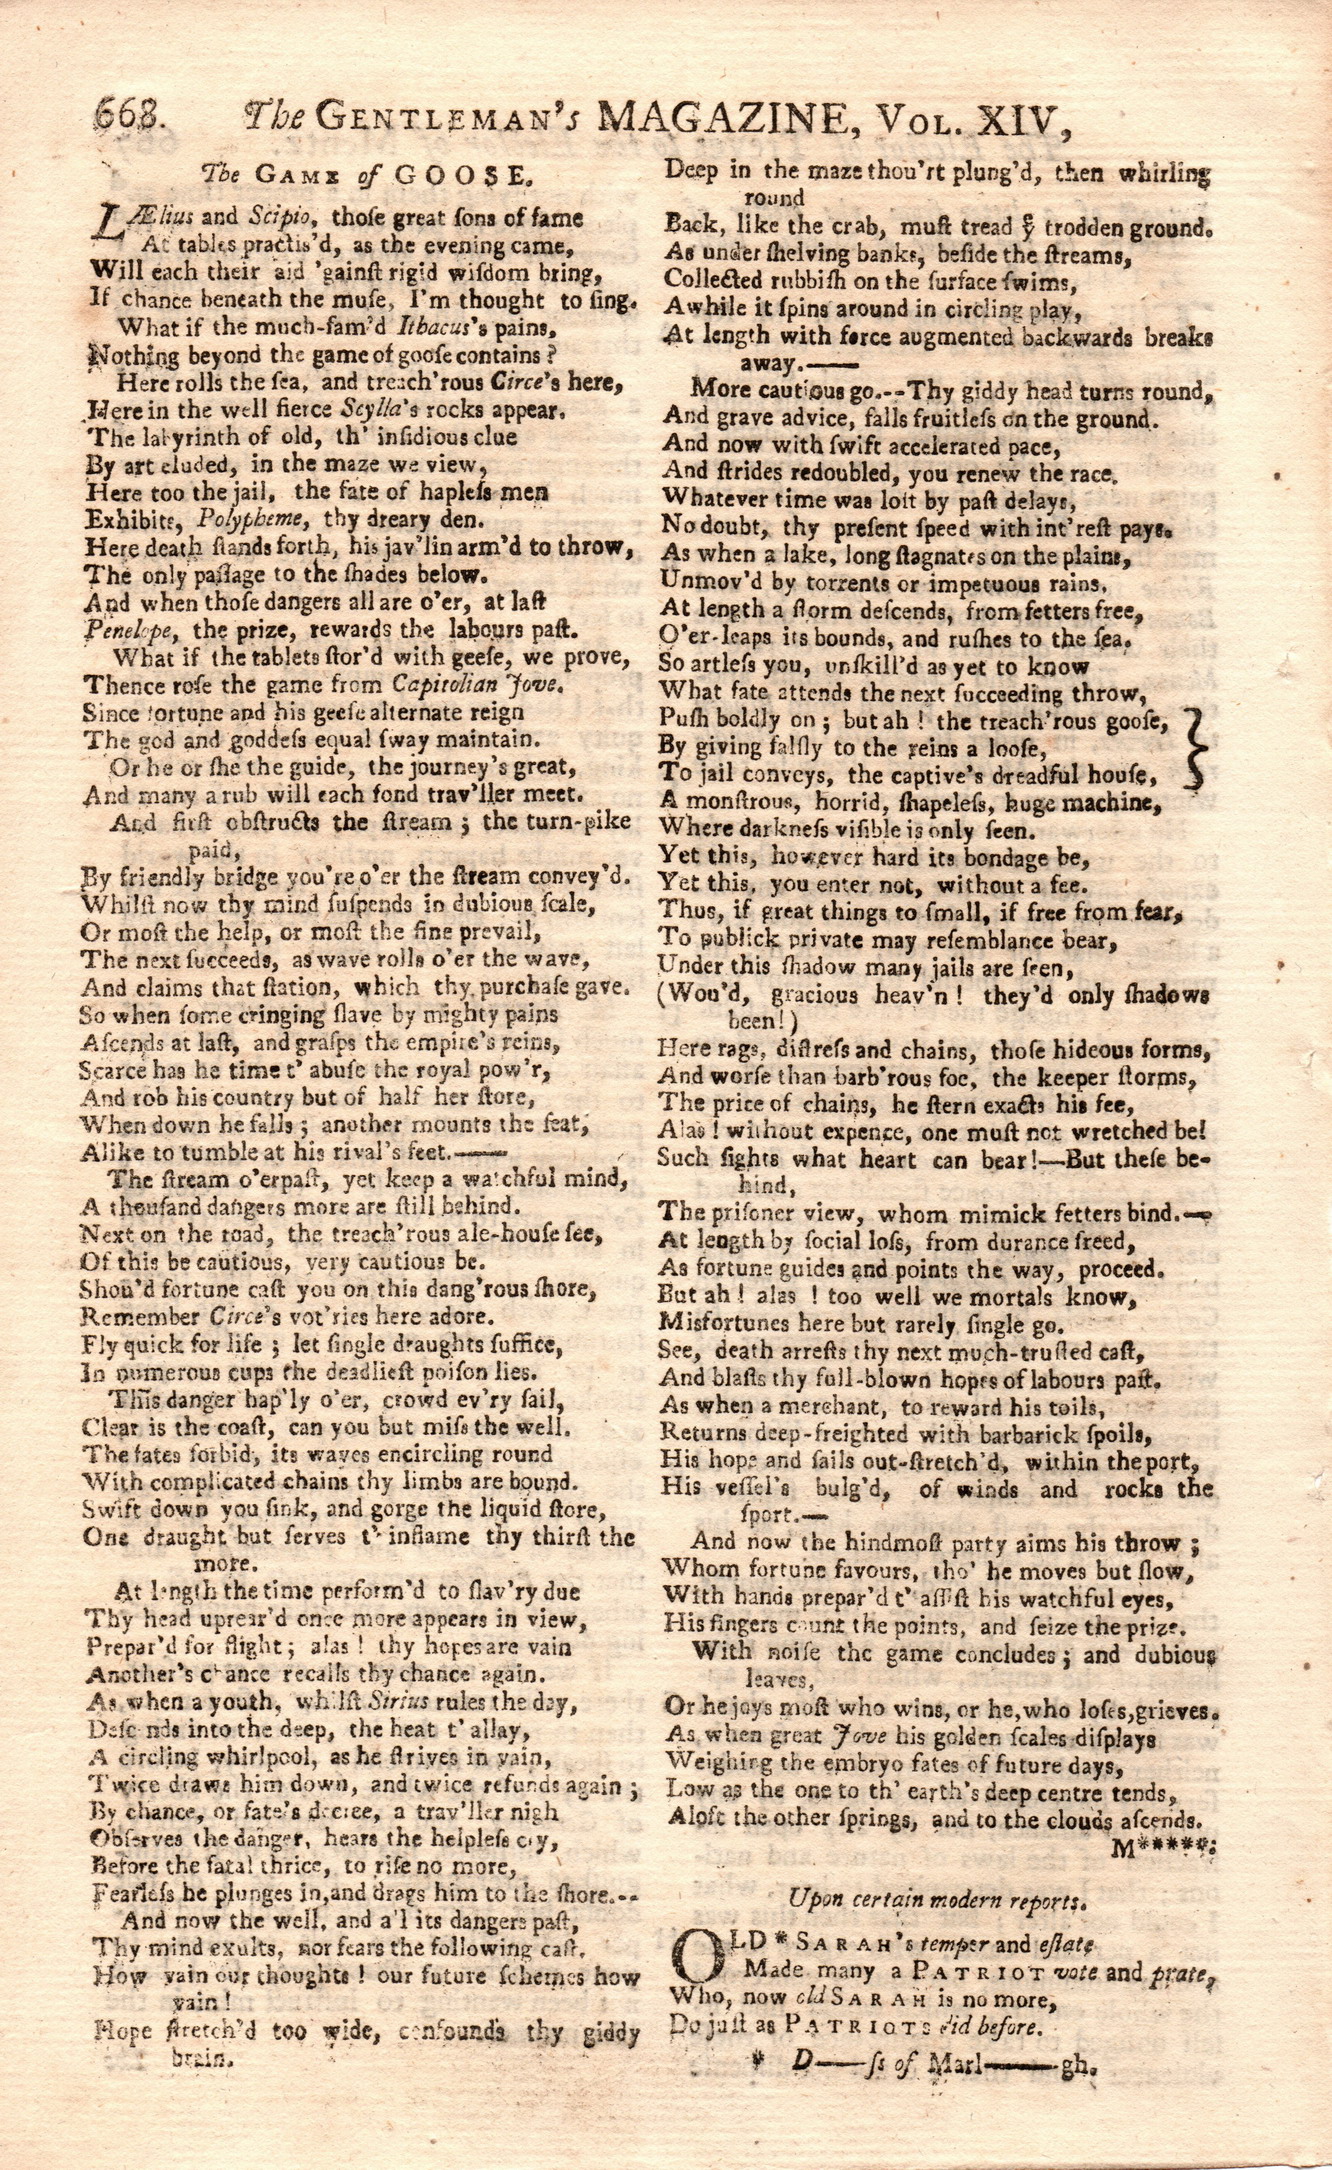 668. The GENTLEMAN's MAGAZINE, VOL. XIV,
The GAME of GOOSE.
LÆlius and Scipio, thoſe great ſons of fame
At tables practis'd, as the evening came,
Will each their aid 'gainſt rigid wiſdom bring,
If chance beneath the muſe, I'm thought to ſing.
What if the much-fam'd Ithacus's pains,
Nothing beyond the game of gooſe contains?
Here rolls the ſea, and treach'rous Circe's here,
Here in the well fierce Scylla's rocks appear.
The labyrinth of old, th' inſidious clue
By art eluded, in the maze we view,
Here too the jail, the fate of hapleſs men
Exhibits, Polypheme, thy dreary den.
Here death ſtands forth, his jav'lin arm'd to throw,
The only paſſage to the ſhades below.
And when thoſe dangers all are o'er, at laſt
Penelope, the prize, rewards the labours paſt.
What if the tablets ſtor'd with geeſe, we prove,
Thence roſe the game from Capitolian Jove.
Since fortune and his geeſe alternate reign
The god and goddeſs equal ſway maintain.
Or he or ſhe the guide, the journey's great,
And many a rub will each fond trav'ller meet.
And firſt obſtructs the ſtream; the turn-pike
paid,
By friendly bridge you're o'er the ſtream convey'd.
Whilſt now thy mind ſuſpends in dubious ſcale,
Or moſt the help, or moſt the fine prevail,
The next ſucceeds, as wave rolls o'er the wave,
And claims that ſtation, which thy purchaſe gave.
So when ſome cringing ſlave by mighty pains
Aſcends at laſt, and graſps the empire's reins,
Scarce has he time t' abuſe the royal pow'r,
And rob his country but of half her ſtore,
When down he falls; another mounts the ſeat,
Alike to tumble at his rival's feet.——
The ſtream o'erpaſt, yet keep a watchful mind,
A thouſand dangers more are ſtill behind.
Next on the road, the treach'rous ale-houſe ſee,
Of this be cautious, very cautious be.
Shou'd fortune caſt you on this dang'rous ſhore,
Remember Circe's vot'ries here adore.
Fly quick for life; let ſingle draughts ſuffice,
In numerous cups the deadlieſt poiſon lies.
This danger hap'ly o'er, crowd ev'ry ſail,
Clear is the coaſt, can you but miſs the well.
The fates forbid, its waves encircling round
With complicated chains thy limbs are bound.
Swift down you ſink, and gorge the liquid ſtore,
One draught but ſerves t' inflame thy thirſt the
more.
At length the time perform'd to ſlav'ry due
Thy head uprear'd once more appears in view,
Prepar'd for flight; alas! thy hopes are vain
Another's chance recalls thy chance again.
As when a youth, whilſt Sirius rules the day,
Deſcends into the deep, the heat t' allay,
A circling whirlpool, as he ſtrives in vain,
Twice draws him down, and twice refunds again;
By chance, or fate's decree, a trav'ller nigh
Obſerves the danger, hears the helpleſs cry,
Before the fatal thrice, to riſe no more,
Fearleſs he plunges in, and drags him to the ſhore.--
And now the well, and all its dangers paſt,
Thy mind exults, nor fears the following caſt.
How vain our thoughts! our future ſchemes how
vain!
Hope ſtretch'd too wide, confounds thy giddy
brain.
Deep in the maze thou'rt plung'd, then whirling
round
Back, like the crab, muſt tread yͤ trodden ground.
As under ſhelving banks, beſide the ſtreams,
Collected rubbiſh on the ſurface ſwims,
Awhile it ſpins around in circling play,
At length with force augmented backwards breaks
away.——
More cautious go.--Thy giddy head turns round,
And grave advice, falls fruitleſs on the ground.
And now with ſwift accelerated pace,
And ſtrides redoubled, you renew the race.
Whatever time was loſt by paſt delays,
No doubt, thy preſent ſpeed with int'reſt pays.
As when a lake, long ſtagnates on the plains,
Unmov'd by torrents or impetuous rains,
At length a ſtorm deſcends, from fetters free,
O'er-leaps its bounds, and ruſhes to the ſea.
So artleſs you, unſkill'd as yet to know
What fate attends the next ſucceeding throw,
Puſh boldly on; but ah! the treach'rous gooſe,
By giving falſly to the reins a looſe,
To jail conveys, the captive's dreadful houſe,
A monſtrous, horrid, ſhapeleſs, huge machine,
Where darkneſs viſible is only ſeen.
Yet this, however hard its bondage be,
Yet this, you enter not, without a fee.
Thus, if great things to ſmall, if free from fear,
To publick private may reſemblance bear,
Under this ſhadow many jails are ſeen,
(Wou'd, gracious heav'n! they'd only ſhadows
been!)
Here rags, diſtreſs and chains, thoſe hideous forms,
And worſe than barb'rous foe, the keeper ſtorms,
The price of chains, he ſtern exacts his fee,
Alas! without expence, one muſt not wretched be!
Such ſights what heart can bear!—But theſe be-
hind,
The priſoner view, whom mimick fetters bind.—
At length by ſocial loſs, from durance freed,
As fortune guides and points the way, proceed.
But ah! alas! too well we mortals know,
Misfortunes here but rarely ſingle go.
See, death arreſts thy next much-truſted caſt,
And blaſts thy full-blown hopes of labours paſt.
As when a merchant, to reward his toils,
Returns deep-freighted with barbarick ſpoils,
His hope and ſails out-ſtretch'd, within the port,
His veſſel's bulg'd, of winds and rocks the
ſport.—
And now the hindmoſt party aims his throw;
Whom fortune favours, tho' he moves but ſlow,
With hands prepar'd t' aſſiſt his watchful eyes,
His fingers count the points, and ſeize the prize.
With noiſe the game concludes; and dubious
leaves,
Or he joys moſt who wins, or he, who loſes, grieves.
As when great Jove his golden ſcales diſplays
Weighing the embryo fates of future days,
Low as the one to th' earth's deep centre tends,
Aloft the other ſprings, and to the clouds aſcends.
M*****:
Upon certain modern reports.
OLD * SARAH's temper and eſtate
Made many a PATRIOT vote and prate,
Who, now old SARAH is no more,
Do juſt as PATRIOTS did before.
* D——ſs of Marl———gh.